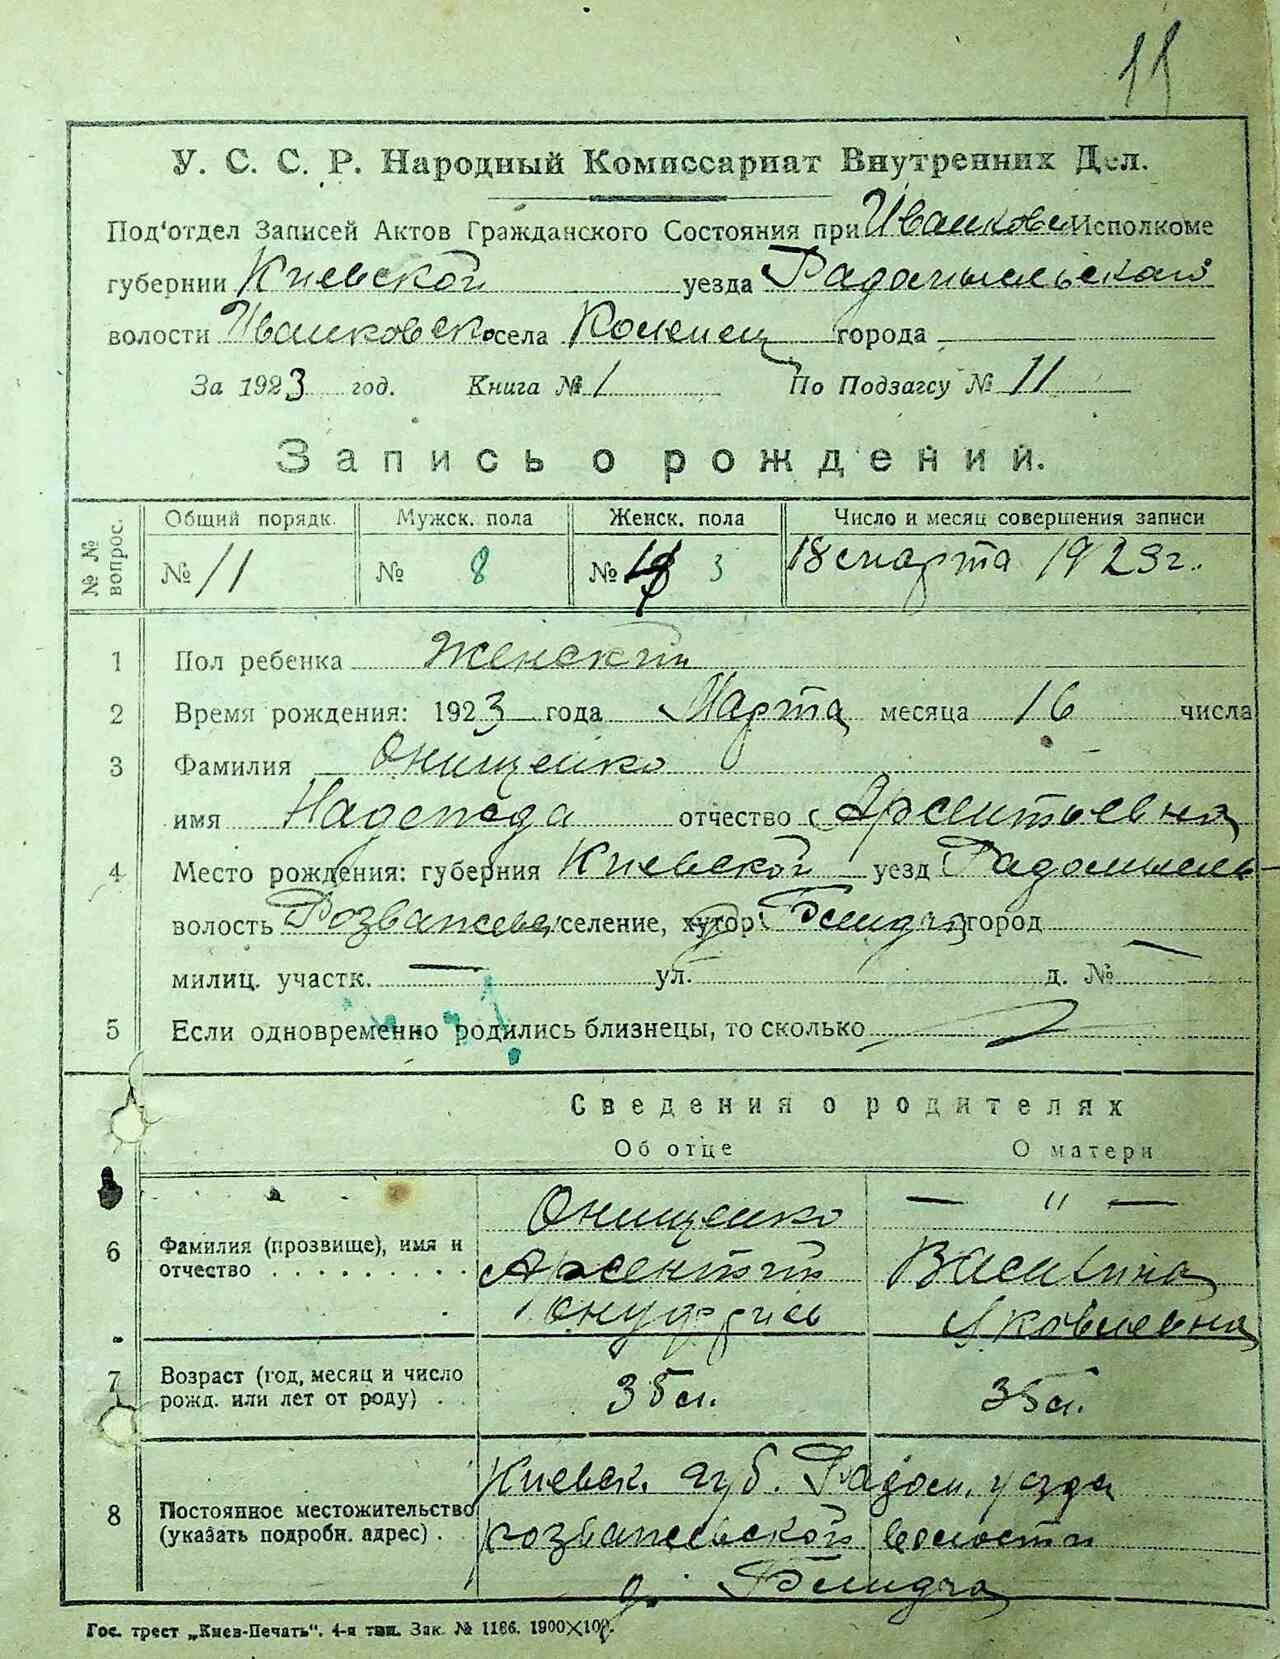 11
У. С. С. Р. Народный Комиссариат Внутренних Дел.
Под'отдел Записей Актов Гражданского Состояния при Иванков Исполкоме
губернии Киевской уезда Радомысльского
волости Иванковск села города
За 1923 год. Книга № 1 По Подзагсу № 11
Запись о рождении.
№ № вопрос. Общий порядк. Мужск. пола Женск. пола Число и месяц совершения записи
№ 11 № 8 № 3 18 марта 1923 г.
1 Пол ребенка Женский
2 Время рождения: 1923 года Марта месяца 16 числа
3 Фамилия Онищенко
имя Надежда отчество Арсентьевна
4 Место рождения: губерния Киевской уезд Радомысль-
волость Розважевск селение, хутор город
милиц. участк. — ул. д. № —
5 Если одновременно родились близнецы, то сколько
Сведения о родителях
Об отце О матери
Онищенко — " —
6 Фамилия (прозвище), имя и отчество . . . . . . . . . Арсентий Василина
Онуфриев Яковлевна
7 Возраст (год, месяц и число рожд. или лет от роду) . . 35 л. 35 л.
Киевск. губ. Радом. уезда
8 Постоянное местожительство (указать подробн. адрес) . Розважевской волости
д.
Гос. трест „Киев-Печать“. 4-я тип. Зак. № 1186. 1900×100.